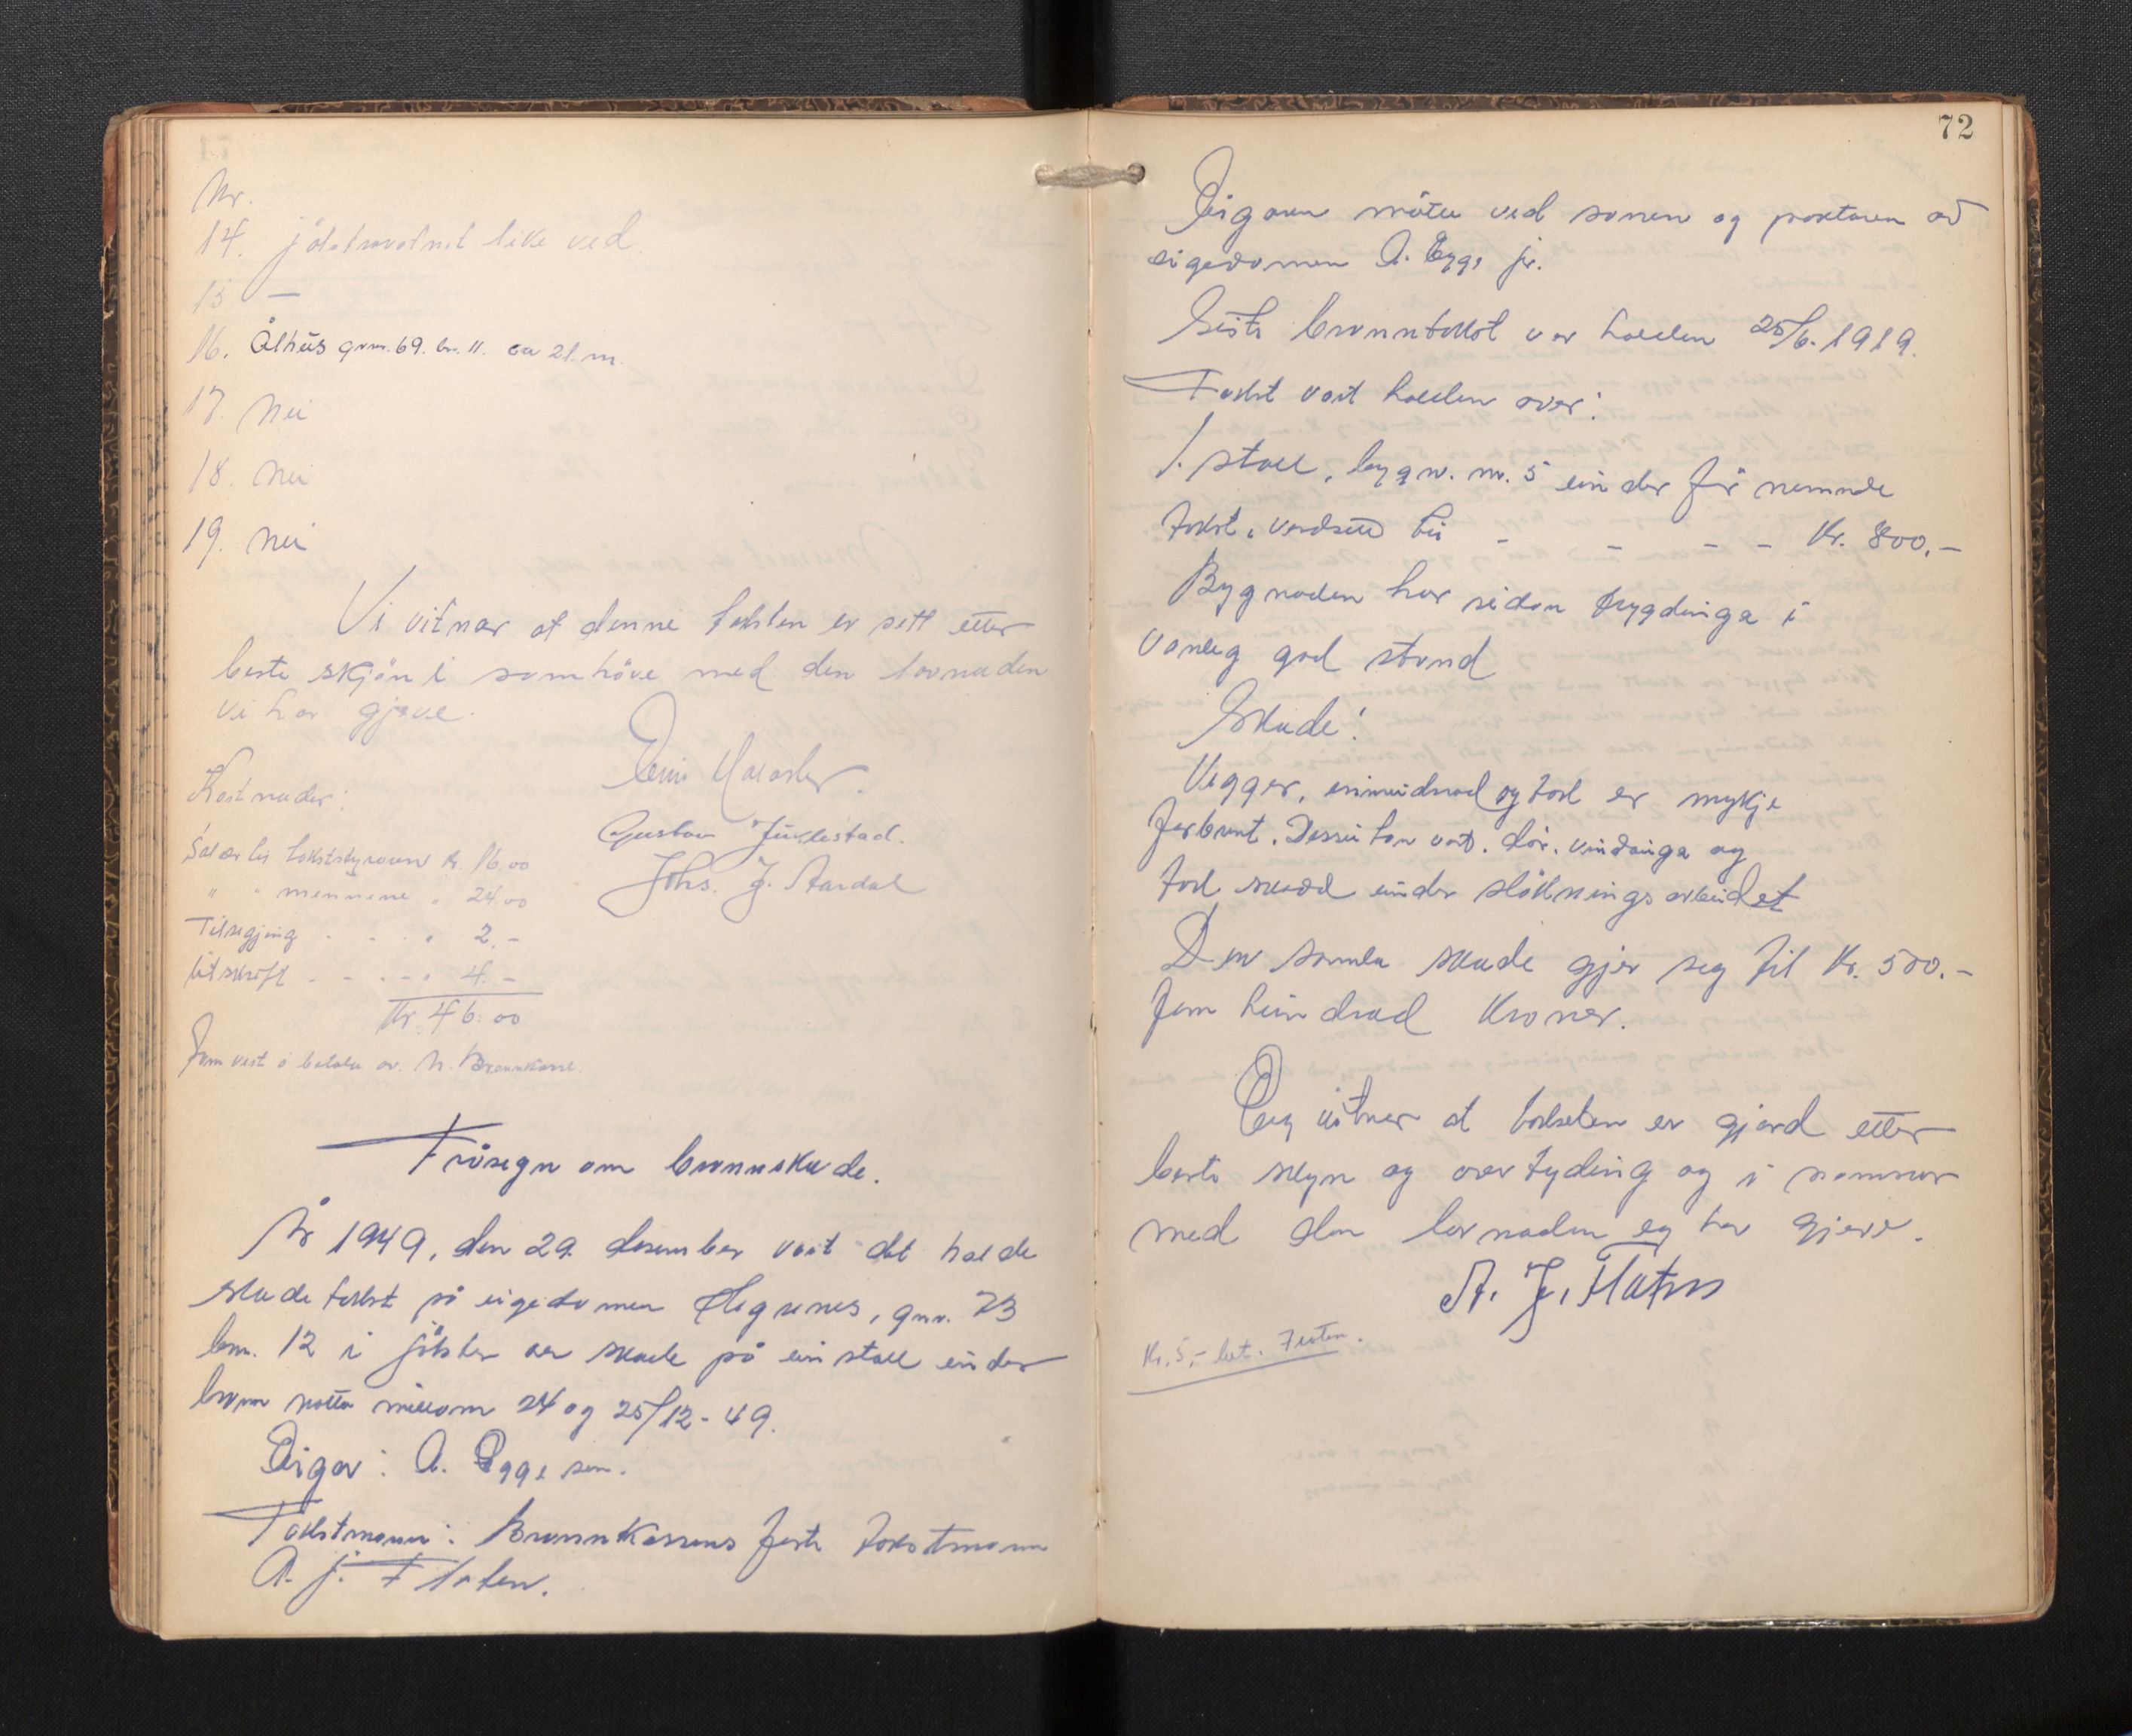 Nr.
14. jölstravatnet like ved
15 —
16. Ålhus gnr. 69. br. 11. ca 21. m.
17. Nei
18. Nei
19. Nei
Vi vitnar at denne taksten er sett etter
beste skjön i samhöve med den lovnaden
vi har gjeve.
Kostnader:
Salær til takststyraren kr. 16.00
" " mennene " 24.00
Gustav
Johs. J. Aardal
Tilsegjing - - - " 2.-
Utskrift - - - - " 4.-
Kr. 46.00
Som vert å betala av N. Brannkasse.
Fråsegn om brannskade.
År 1949, den 29. desember vart det halde
skadetakst på eigedomen gnr. 73
brn. 12 i Jölster over skade på ein stall under
brann natta millom 24 og 25/12 - 49.
Eigar: A. Egge sen.
Takstmann: Brannkassens faste takstmann
A. J. Flaten.
72
Eigaren möter ved sonen og paktaren av
eigedomen A. Egge jr.
Siste branntakst var halden 25/6. 1919.
Takst vart halden over:
1. stall, bygn. nr. 5 under för nemnde
takst, verdsett til - - - - Kr. 800.-
Bygnaden har sidan trygdinga i
vanleg god stand
Skade:
Vegger, innreidnad og tak er mykje
forbrent. Dessutan vart dör, vindauga og
tak skadd under slökningsarbeidet
Den samla skade gjer seg til Kr. 500.-
fem hundrad kroner.
Eg vitner at taksten er gjord etter
beste skyn og overtyding og i samsvar
med den lovnaden eg har gjeve.
A. J. Flaten
Kr. 5,- bet. Flaten.